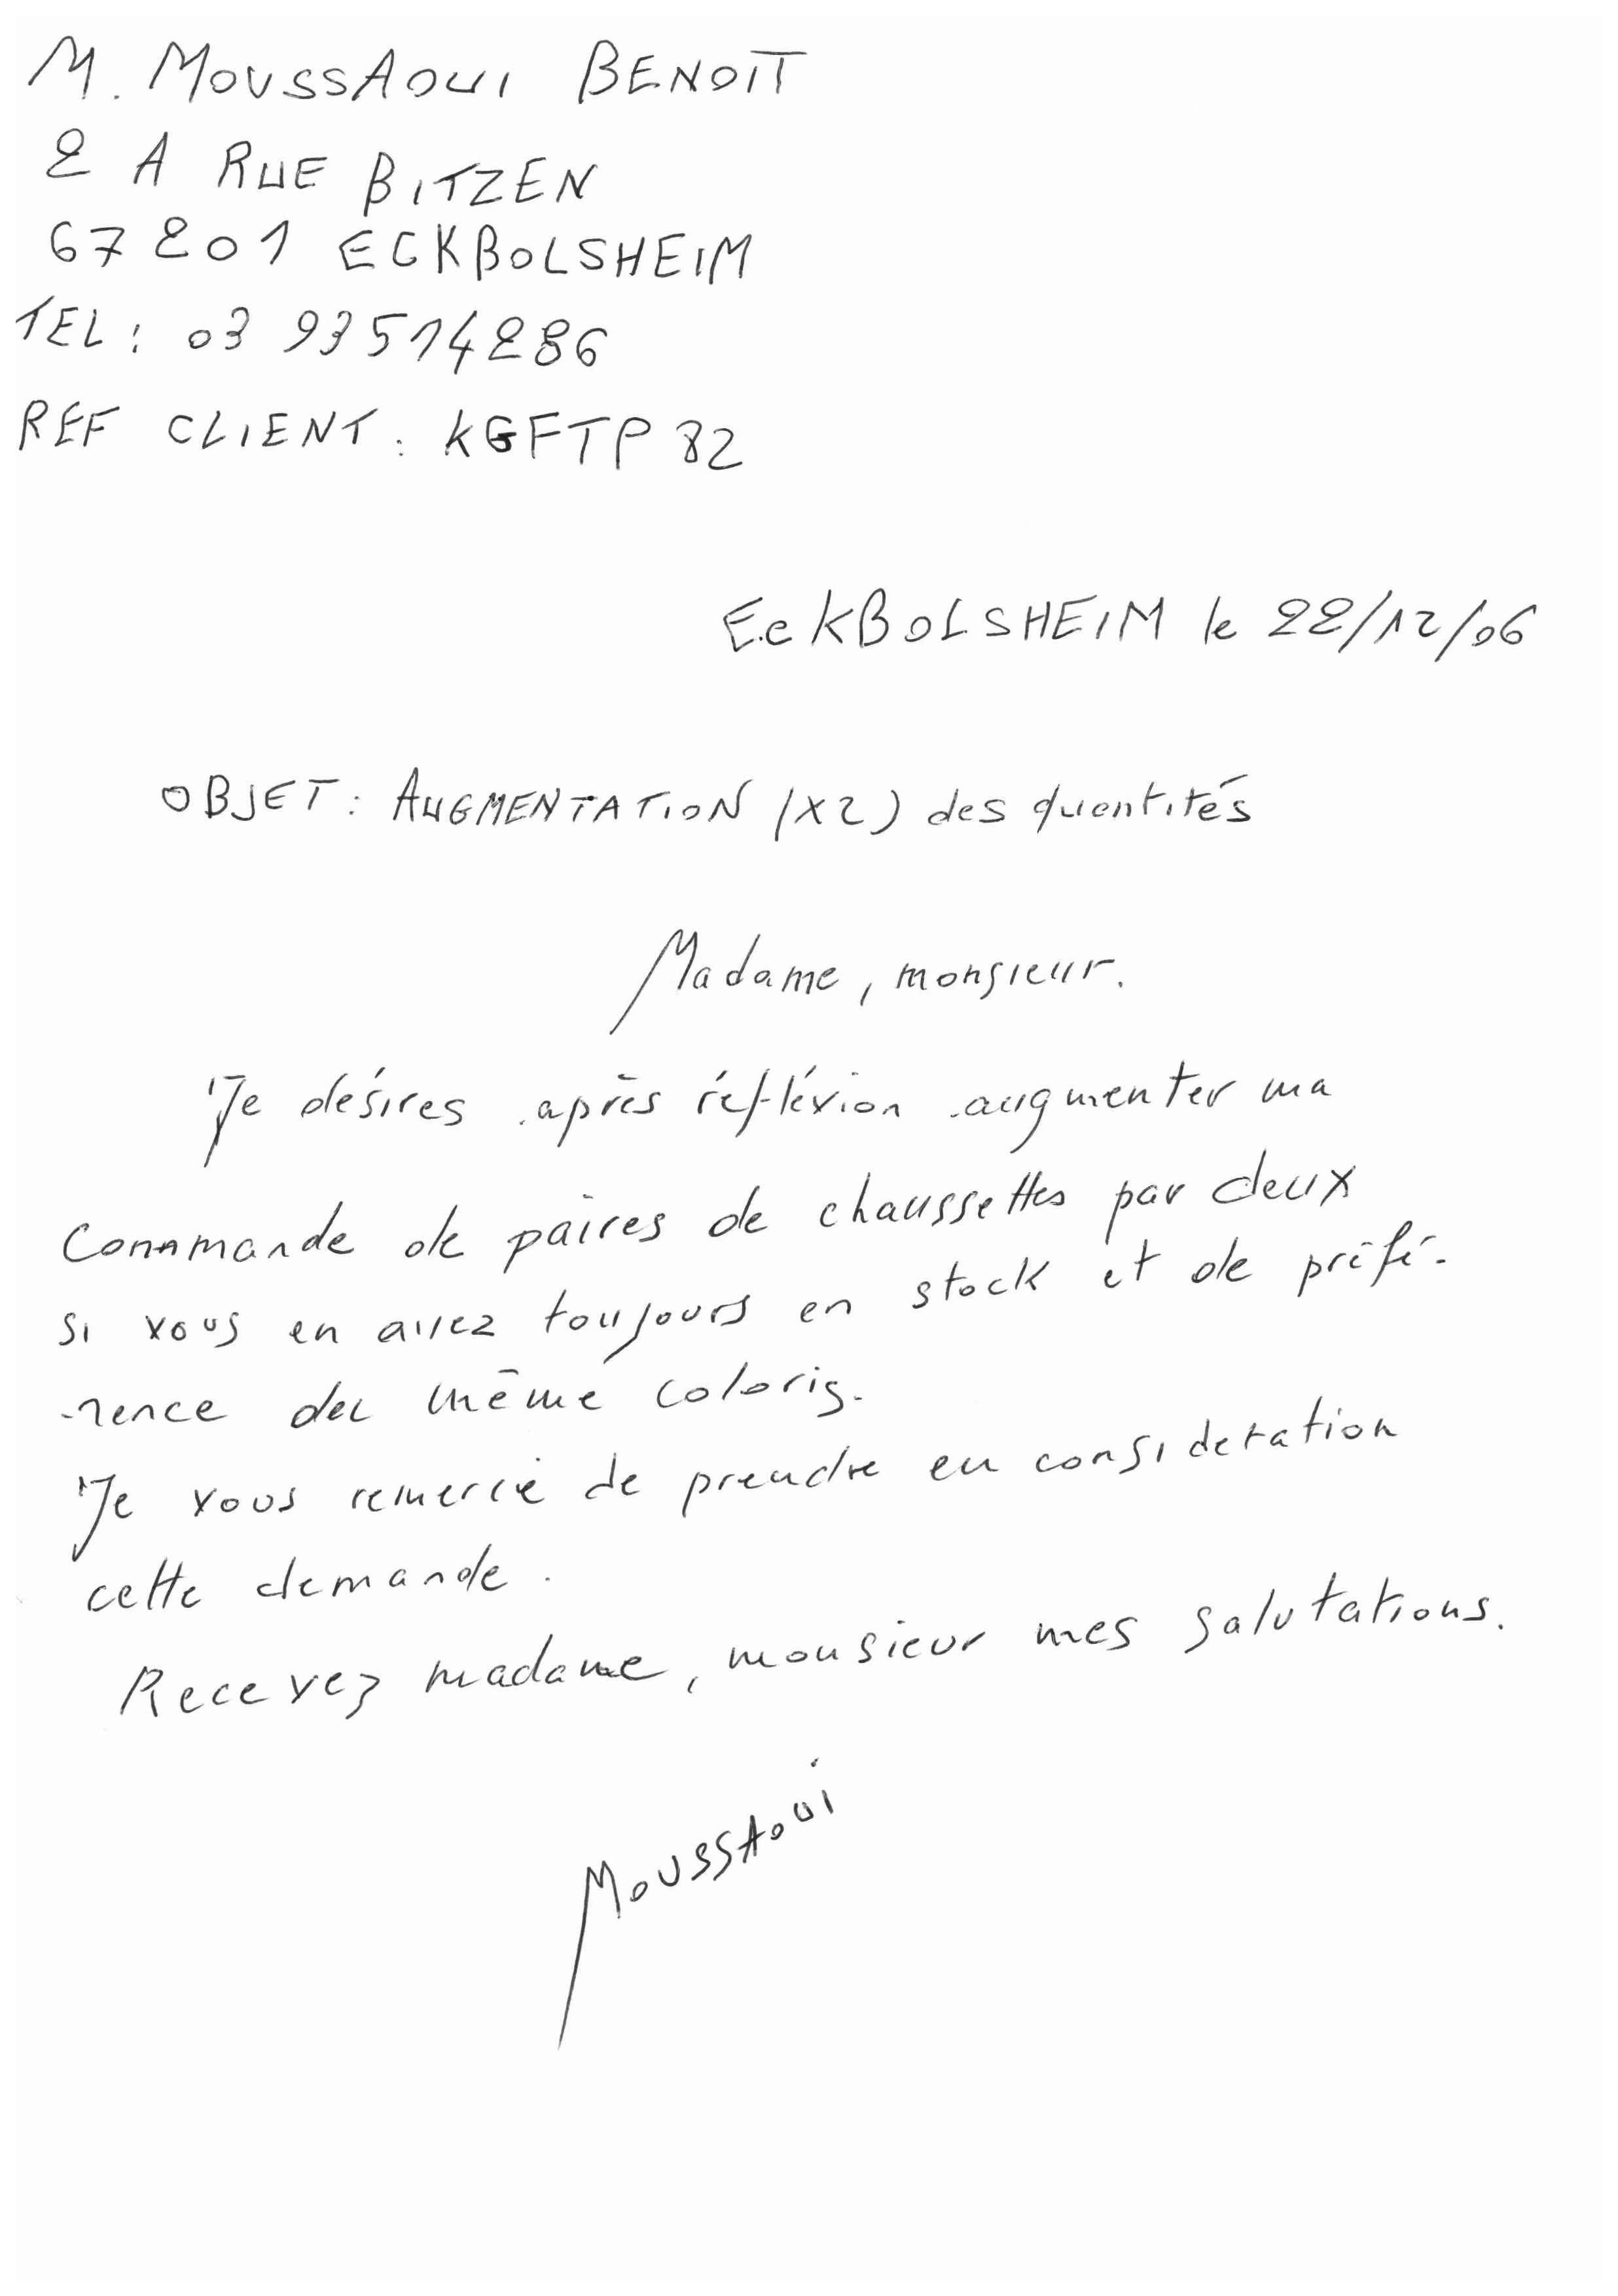 M. MOUSSAOUI BENOIT
2 A RUE BITZEN
67201 ECKBOLSHEIM
TEL : 03 93514286
REF CLIENT : KGFTP 82
EcKBOLSHEIM le 22/12/06
OBJET : AUGMENTATION (X2) des quantités
Madame, monsieur.
Je désires après réfléxion augmenter ma
Commande de paires de chaussettes par deux
si vous en avez toujours en stock et de préfé-
-rence du même coloris.
Je vous remercie de prendre en consideration
cette demande.
Recevez madame, monsieur mes salutations.
MOUSSAOUI